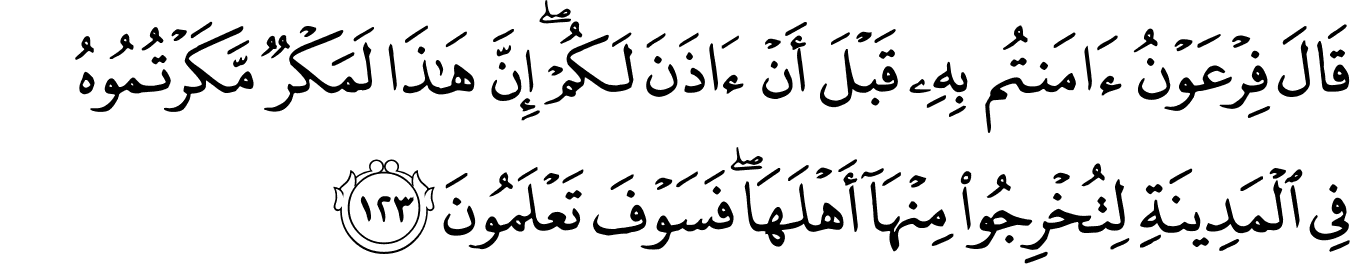 قَالَ فِرۡعَوۡنُ ءَامَنتُم بِهِۦ قَبۡلَ أَنۡ ءَاذَنَ لَكُمۡۖ إِنَّ هَٰذَا لَمَكۡرٞ مَّكَرۡتُمُوهُ
فِي ٱلۡمَدِينَةِ لِتُخۡرِجُواْ مِنۡهَآ أَهۡلَهَاۖ فَسَوۡفَ تَعۡلَمُونَ ١٢٣